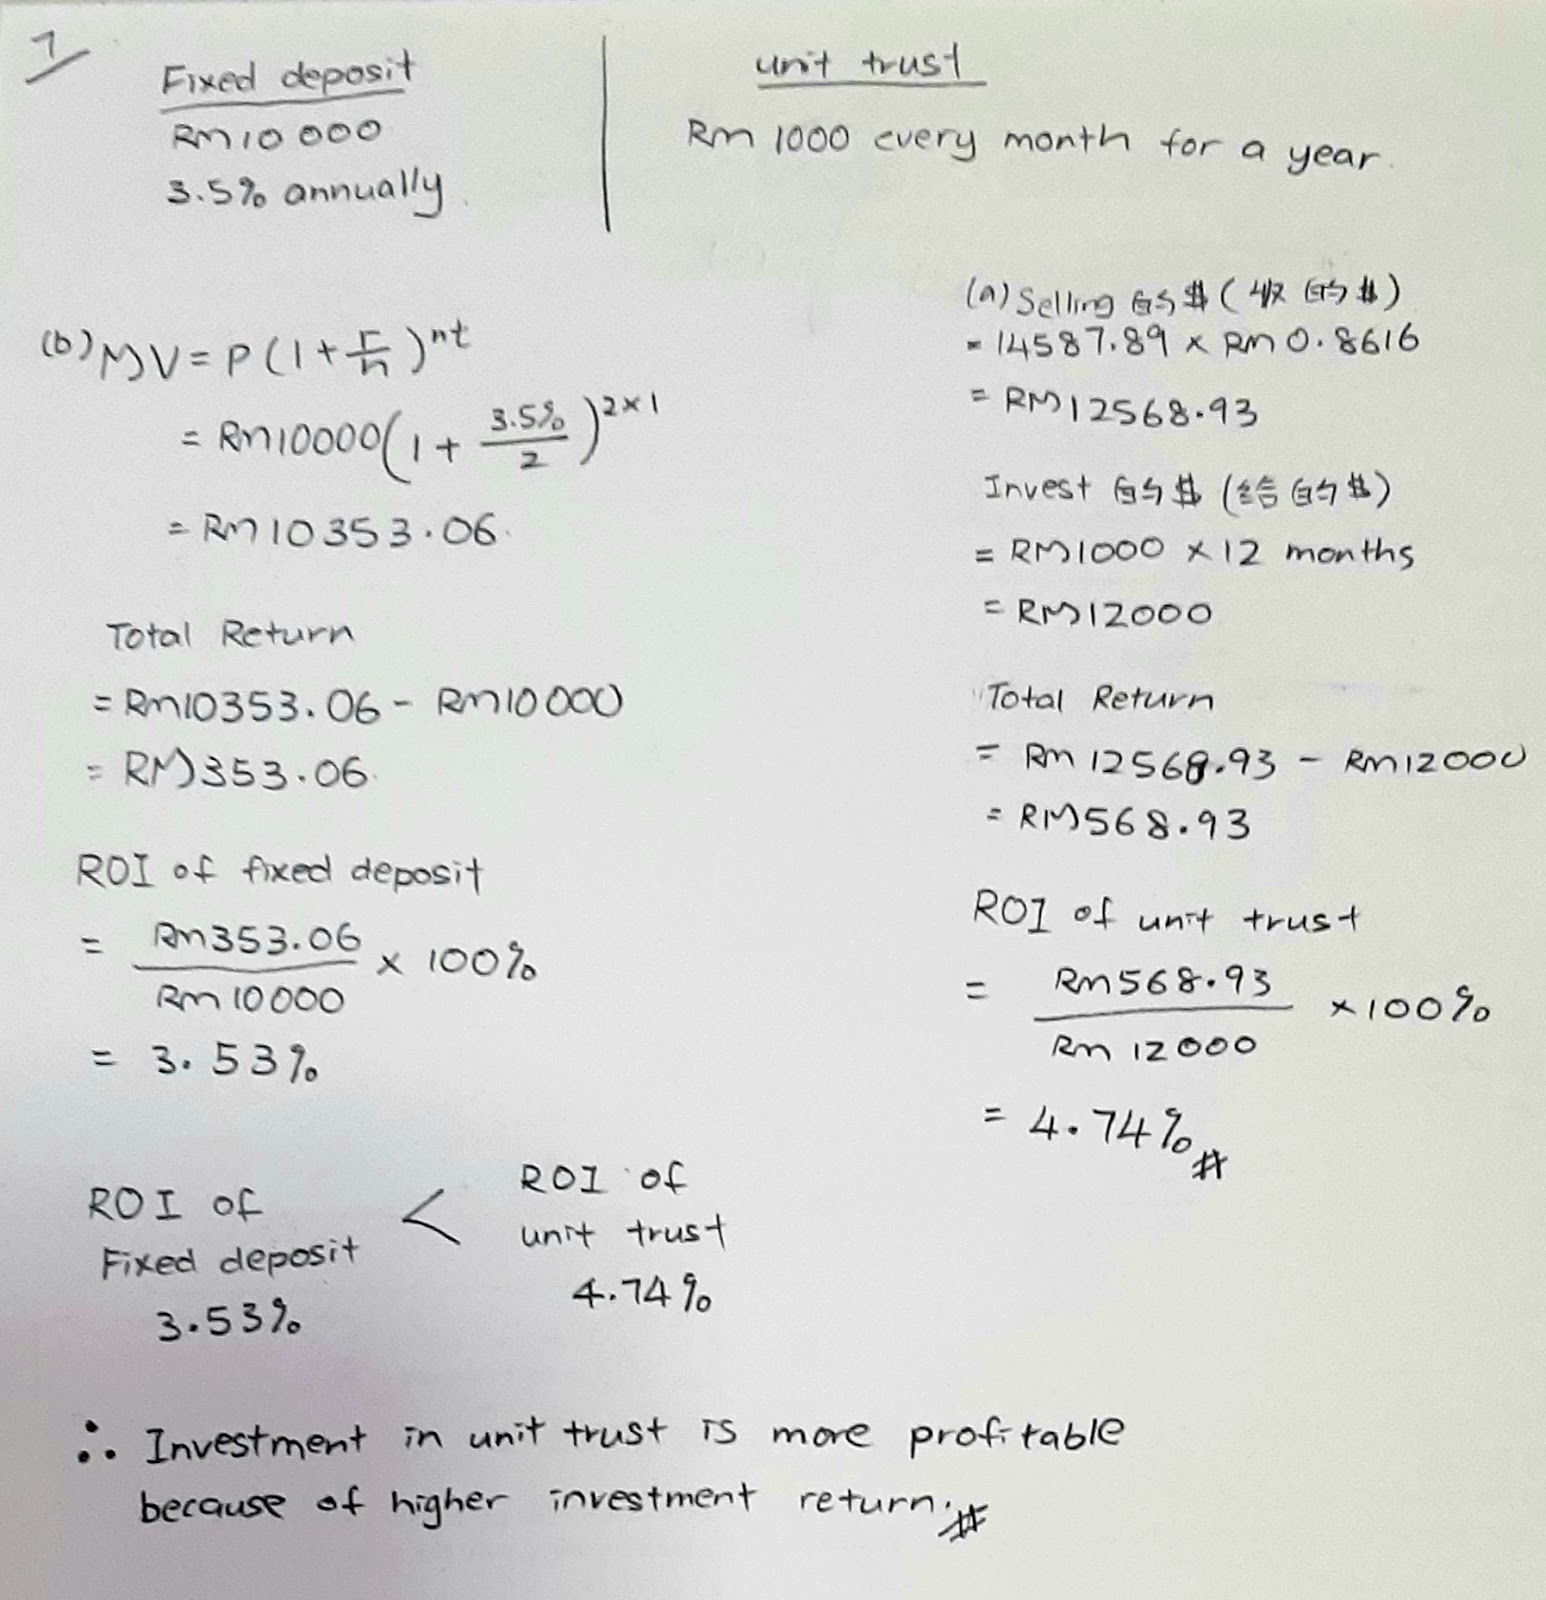 7
Fixed deposit
RM10 000
3.5% annually.
unit trust
RM 1000 every month for a year.
(b) MV = P(1 + r/n)^nt
= RM10000(1 + 3.5%/2)^2×1
= RM10353.06.
Total Return
= RM10353.06 - RM10000
= RM353.06.
ROI of fixed deposit
= RM353.06/RM10000 × 100%
= 3.53%
(a) Selling 的$ (收的$)
= 14587.89 × RM0.8616
= RM12568.93
Invest 的$ (给的$)
= RM1000 × 12 months
= RM12000
Total Return
= RM12568.93 - RM12000
= RM568.93
ROI of unit trust
= RM568.93/RM12000 × 100%
= 4.74%#
ROI of Fixed deposit < ROI of unit trust
3.53% 4.74%
∴ Investment in unit trust is more profitable
because of higher investment return.#